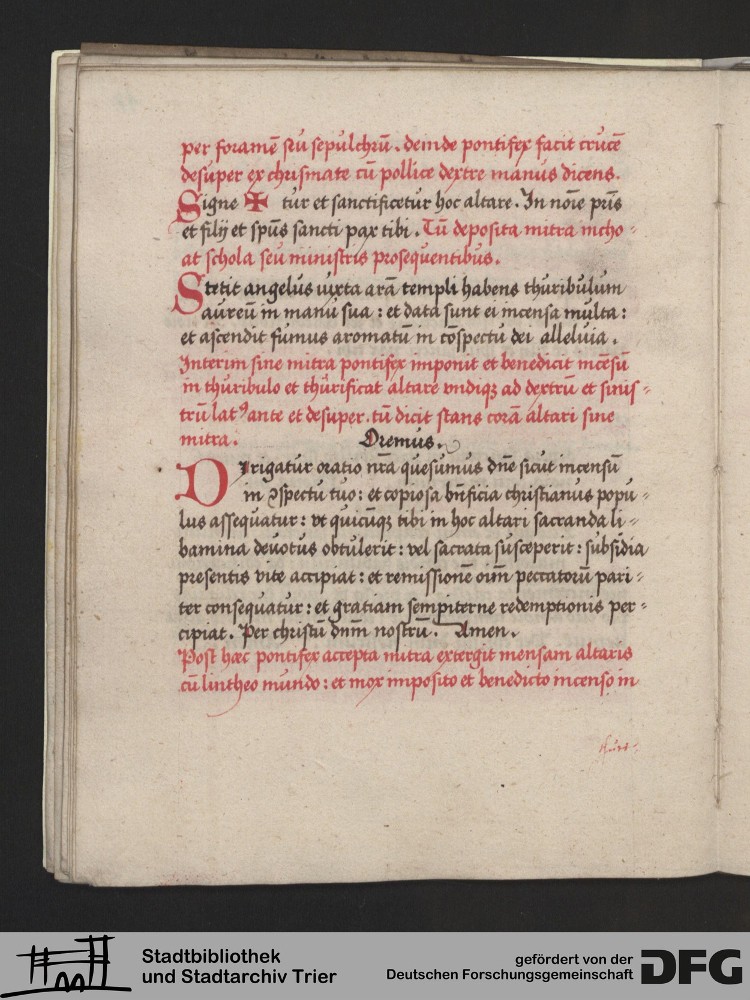 per foramē seu sepulchrū. deinde pontifex facit crucē
desuper ex chrismate cū pollice dextre manus dicens.
Signe ✠ tur et sanctificetur hoc altare. In noīe pr̄is
et filij et sp̄us sancti pax tibi. Tū deposita mitra incho⸗
at schola seu ministris prosequentibus.
Stetit angelus iuxta arā templi habens thuribulum
aureū in manu sua: et data sunt ei incensa multa:
et ascendit fumus aromatū in cōspectu dei alleluia.
Interim sine mitra pontifex imponit et benedicit incēsū
in thuribulo et thurificat altare vndiqꝫ ad dextrū et sinis⸗
trū latꝰ ante et desuper. tū dicit stans corā altari sine
mitra. Oremus.
Dirigatur oratio nr̄a quesumus dn̄e sicut incensū
in ꝯspectu tuo: et copiosa bn̄ficia christianus popu⸗
lus assequatur: vt quicūqꝫ tibi in hoc altari sacranda li⸗
bamina deuotus obtulerit: vel sacrata susceperit: subsidia
presentis vite accipiat: et remissionē oīm peccatorū pari⸗
ter consequatur: et gratiam sempiterne redemptionis per⸗
cipiat. Per christū dn̄m nostrū. Amen.
Post hæc pontifex accepta mitra extergit mensam altaris
cū lintheo mundo: et mox imposito et benedicto incenso in
thuri⸗
Stadtbibliothek
und Stadtarchiv Trier
gefördert von der
Deutschen Forschungsgemeinschaft
DFG